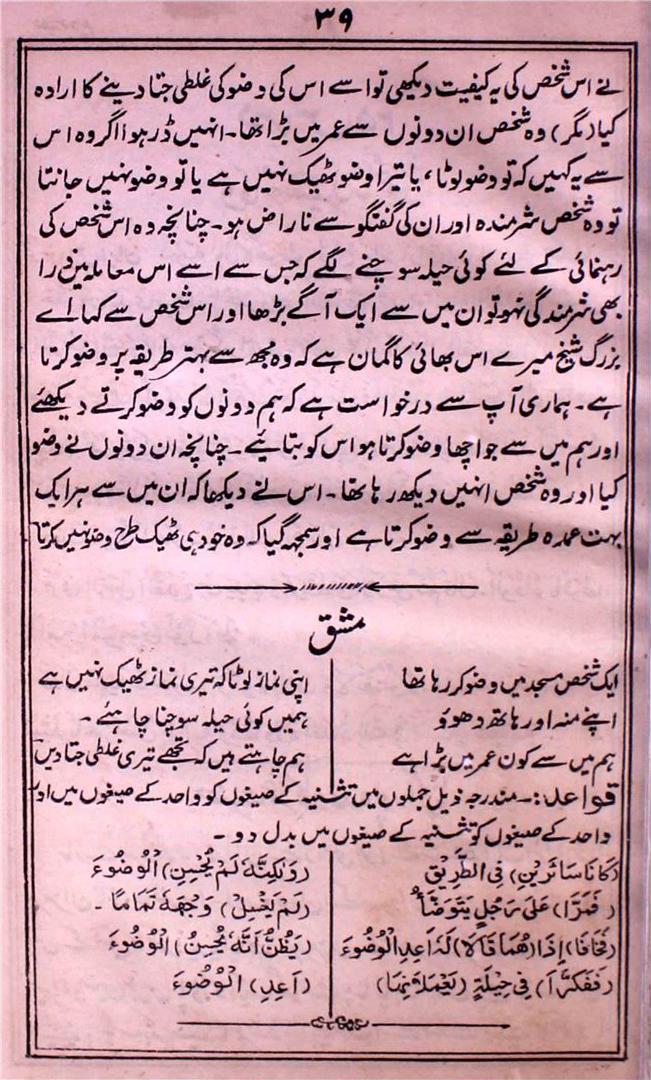 ۳۹
نے اس شخص کی یہ کیفیت دیکھی تو اسے اس کی وضو کی غلطی جتا دینے کا ارادہ
کیا (مگر) وہ شخص ان دونوں سے عمر میں بڑا تھا۔ انہیں ڈر ہوا اگر وہ اس
سے یہ کہیں کہ تو وضو لوٹا، یا تیرا وضو ٹھیک نہیں ہے یا تو وضو نہیں جانتا
تو وہ شخص شرمندہ اور ان کی گفتگو سے ناراض ہو۔ چنانچہ وہ اس شخص کی
رہنمائی کے لئے کوئی حیلہ سوچنے لگے کہ جس سے اسے اس معاملہ میں ذرا
بھی شرمندگی نہو تو ان میں سے ایک آگے بڑھا اور اس شخص سے کہا اے
بزرگ شیخ میرے اس بھائی کا گمان ہے کہ وہ مجھ سے بہتر طریقہ پر وضو کرتا
ہے۔ ہماری آپ سے درخواست ہے کہ ہم دونوں کو وضو کرتے دیکھئے
اور ہم میں سے جو اچھا وضو کرتا ہو اس کو بتائیے۔ چنانچہ ان دونوں نے وضو
کیا اور وہ شخص انہیں دیکھ رہا تھا۔ اس نے دیکھا کہ ان میں سے ہر ایک
بہت عمدہ طریقہ سے وضو کرتا ہے اور سمجھ گیا کہ وہ خود ہی ٹھیک طرح وضو نہیں کرتا
مشق
ایک شخص مسجد میں وضو کر رہا تھا
اپنے منہ اور ہاتھ دھوؤ
ہم میں سے کون عمر میں بڑا ہے
اپنی نماز لوٹا کہ تیری نماز ٹھیک نہیں ہے
ہمیں کوئی حیلہ سوچنا چاہئے۔
ہم چاہتے ہیں کہ تجھے تیری غلطی جتا دیں
قواعد:۔ مندرجہ ذیل جملوں میں تثنیہ کے صیغوں کو واحد کے صیغوں میں اور
واحد کے صیغوں کو تثنیہ کے صیغوں میں بدل دو۔
(كَانَا سَائِرَيْنِ) فِي الطَّرِيْقِ
(فَمَرَّا) عَلىٰ رَجُلٍ يَتَوَضَّأُ
(فَخَافَا) إِذَا (هُمَا قَالَا) لَهٗ اَعِدِ الْوُضُوْءَ
(فَفَكَّرَا) فِي حِيْلَةٍ (يَعْمَلَانِهَا)
(وَلٰكِنَّهٗ لَمْ يُحْسِنِ) الْوُضُوْءَ
(لَمْ يَغْسِلْ) وَجْهَهٗ تَمَامًا۔
(يَظُنُّ اَنَّهٗ يُحْسِنُ) الْوُضُوْءَ
(اَعِدِ) الْوُضُوْءَ